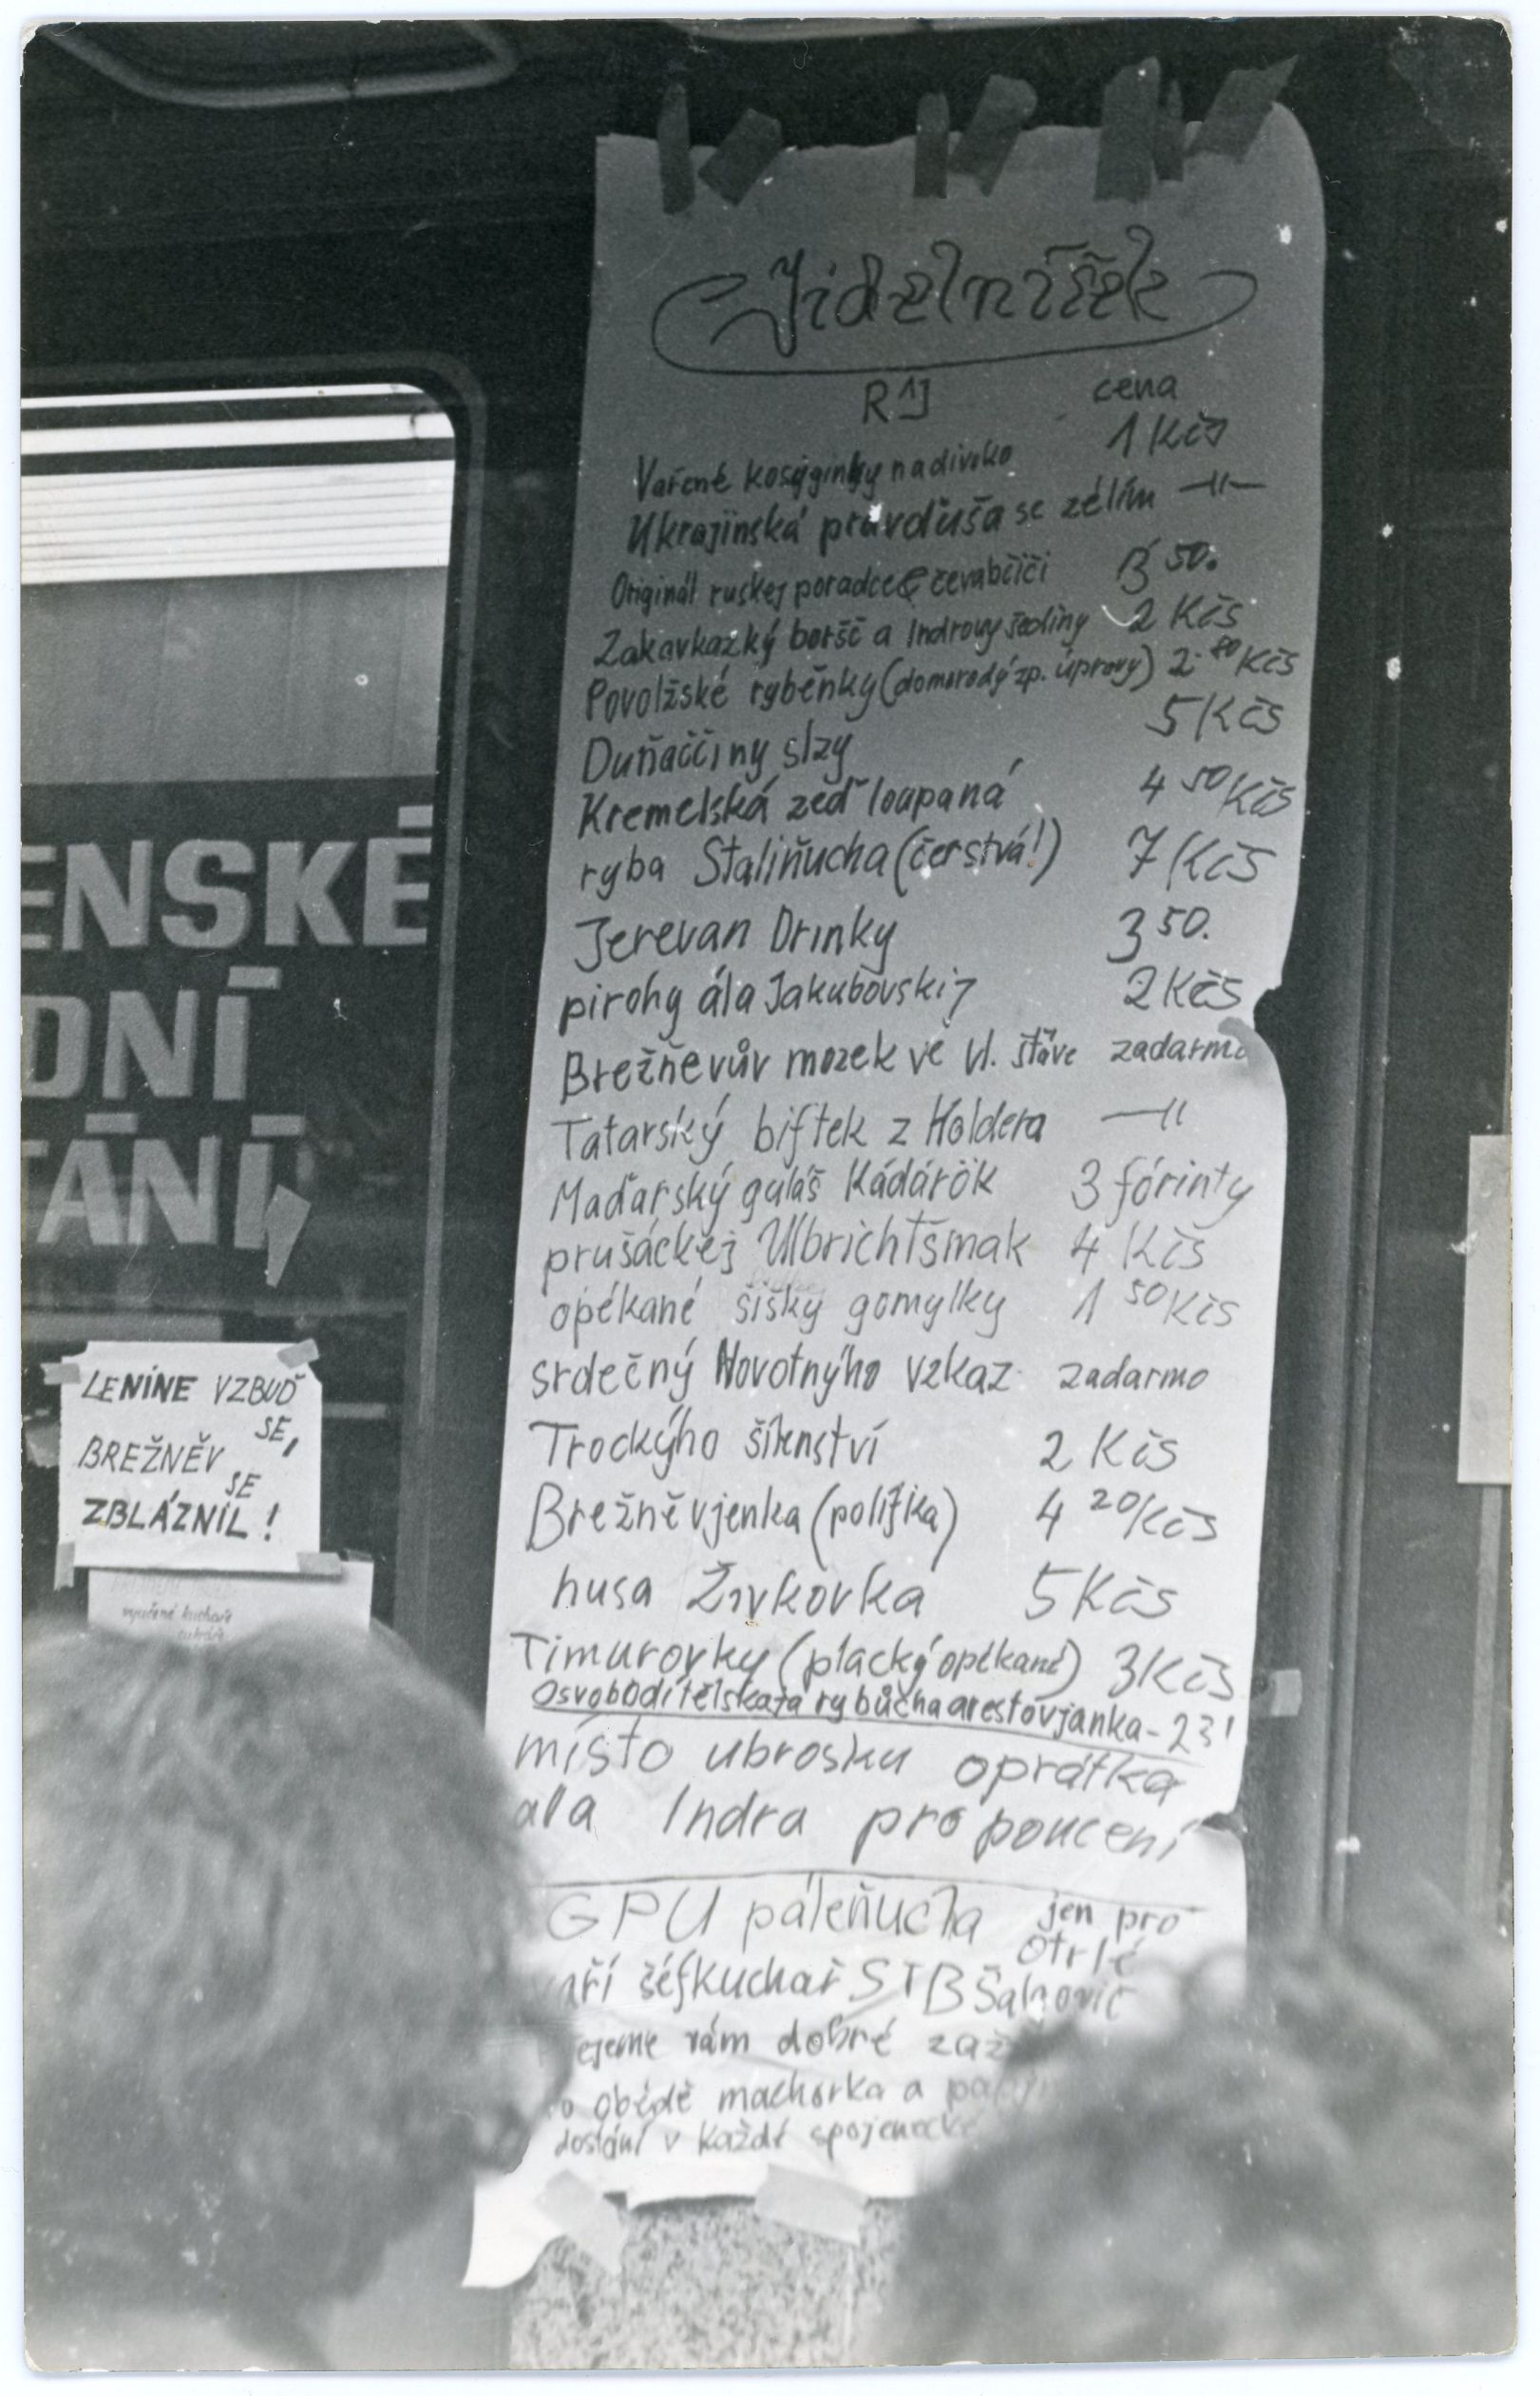 Jidelníšek
RJ cena
Vařené kosyginky na divoko 1 Kčs
Ukrajinská pravďuša se zélím —"—
Originál ruskej poradce čevabčiči 3 50.
Zakavkazký boršč a Indrovy šediny 2 Kčs
Povolžské ryběnky (domorodý zp. úpravy) 2.80 Kčs
Duňaččiny slzy 5 Kčs
Kremelská zeď loupaná 4 50 Kčs
ryba Staliňucha (čerstvá!) 7 Kčs
Jerevan Drinky 3 50.
pirohy ála Jakubovskij 2 Kčs
Brežněvův mozek ve vl. štáve zadarmo
Tatarský biftek z Holdera —"
Maďarský guláš Kádárök 3 fórinty
prušáckej Ulbrichtšmak 4 Kčs
opékané šišky gomylky 1 50 Kčs
srdečný Novotnýho vzkaz zadarmo
Trockýho šílenství 2 Kčs
Brežněvjenka (polífka) 4 20 Kčs
husa Živkovka 5 Kčs
Timurovky (placky opékané) 3 Kčs
Osvobodítělskaja rybůcha arestovjanka - 23!
místo ubrosku oprátka
ala Indra pro poucení
GPU páleňucha jen pro
otrlé
vaří šéfkuchař STB Šalgovič
ejeme vám dobré zaž
o obědě machorka a
dostání v každé spojenecké
ENSKÉ
DNÍ
TÁNÍ
LENÍNE VZBUĎ
SE,
BREŽNĚV
SE
ZBLÁZNIL!
vyučené kuchaře